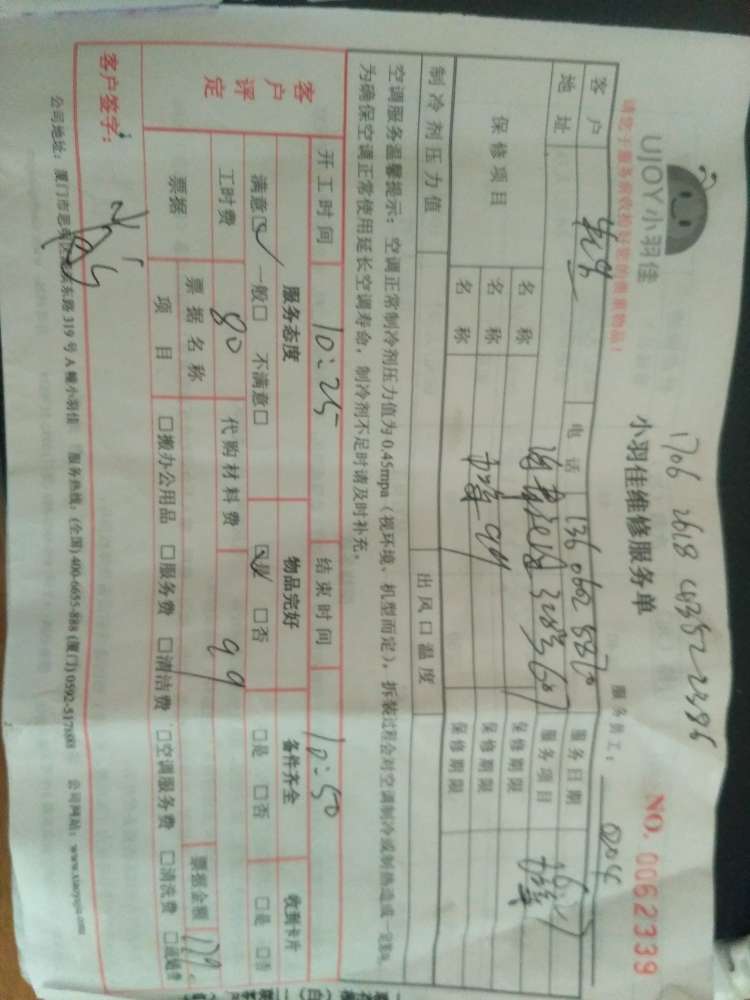 1706 2618
UJOY小羽佳
小羽佳维修服务单
NO. 0062339
请您于服务前收拾好您的贵重物品！
服务员工：
客户
电话 136 0602 5870
服务日期
地址
服务项目
保修项目
名称
保修期限
名称
保修期限
名称
保修期限
制冷剂压力值
出风口温度
空调服务温馨提示：空调正常制冷剂压力值为0.45mpa（视环境、机型而定），拆装过程会对空调制冷或制热造成一定影响，
为确保空调正常使用延长空调寿命，制冷剂不足时请及时补充。
开工时间 10:25 结束时间 10:50
客户评定
服务态度 物品完好 备件齐全 收到卡片
满意☑ 一般□ 不满意□ ☑是 □否 □是 □否 □是 □否
工时费 80 代购材料费 99
票据
票据名称
票据金额 179.
项目 □搬办公用品 □服务费 □清洁费 □空调服务费 □清洗费
客户签字：
公司地址：厦门市思 东路319号A幢小羽佳 服务热线：(全国) 400-6655-888 (厦门) 0592-517 公司网站：www.xiaoyujia.com